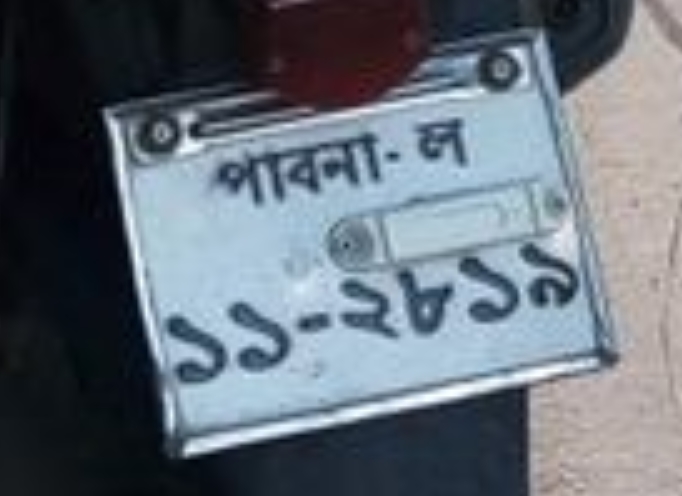 পাবনা- ল
১১-২৮১৯